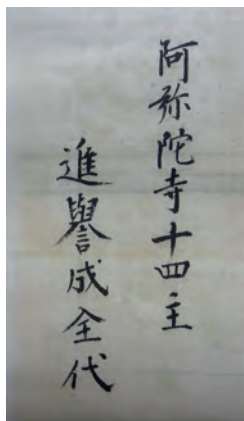 阿弥陀寺十四主
進譽成全代